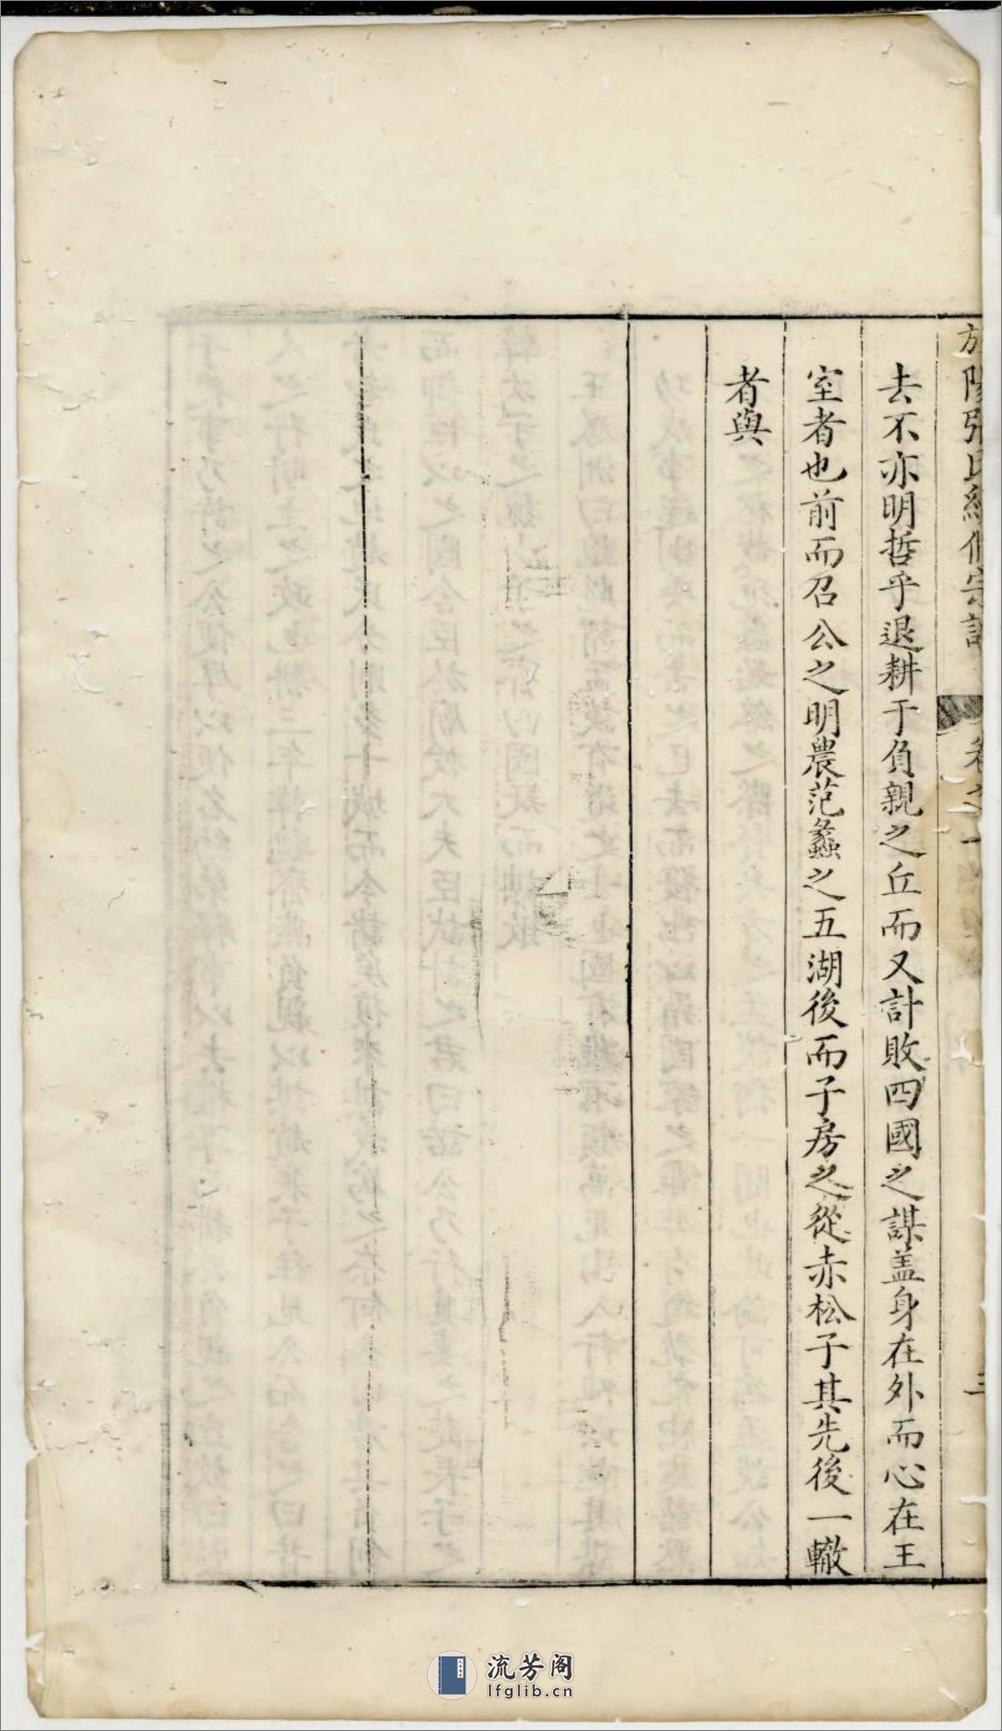 張氏統宗
卷之一
三
去不亦明哲乎退耕于負親之丘而又計敗四國之謀盖身在外而心在王
室者也前而召公之明農范蠡之五湖後而子房之從赤松子其先後一轍
者與
流芳阁
lfglib.cn